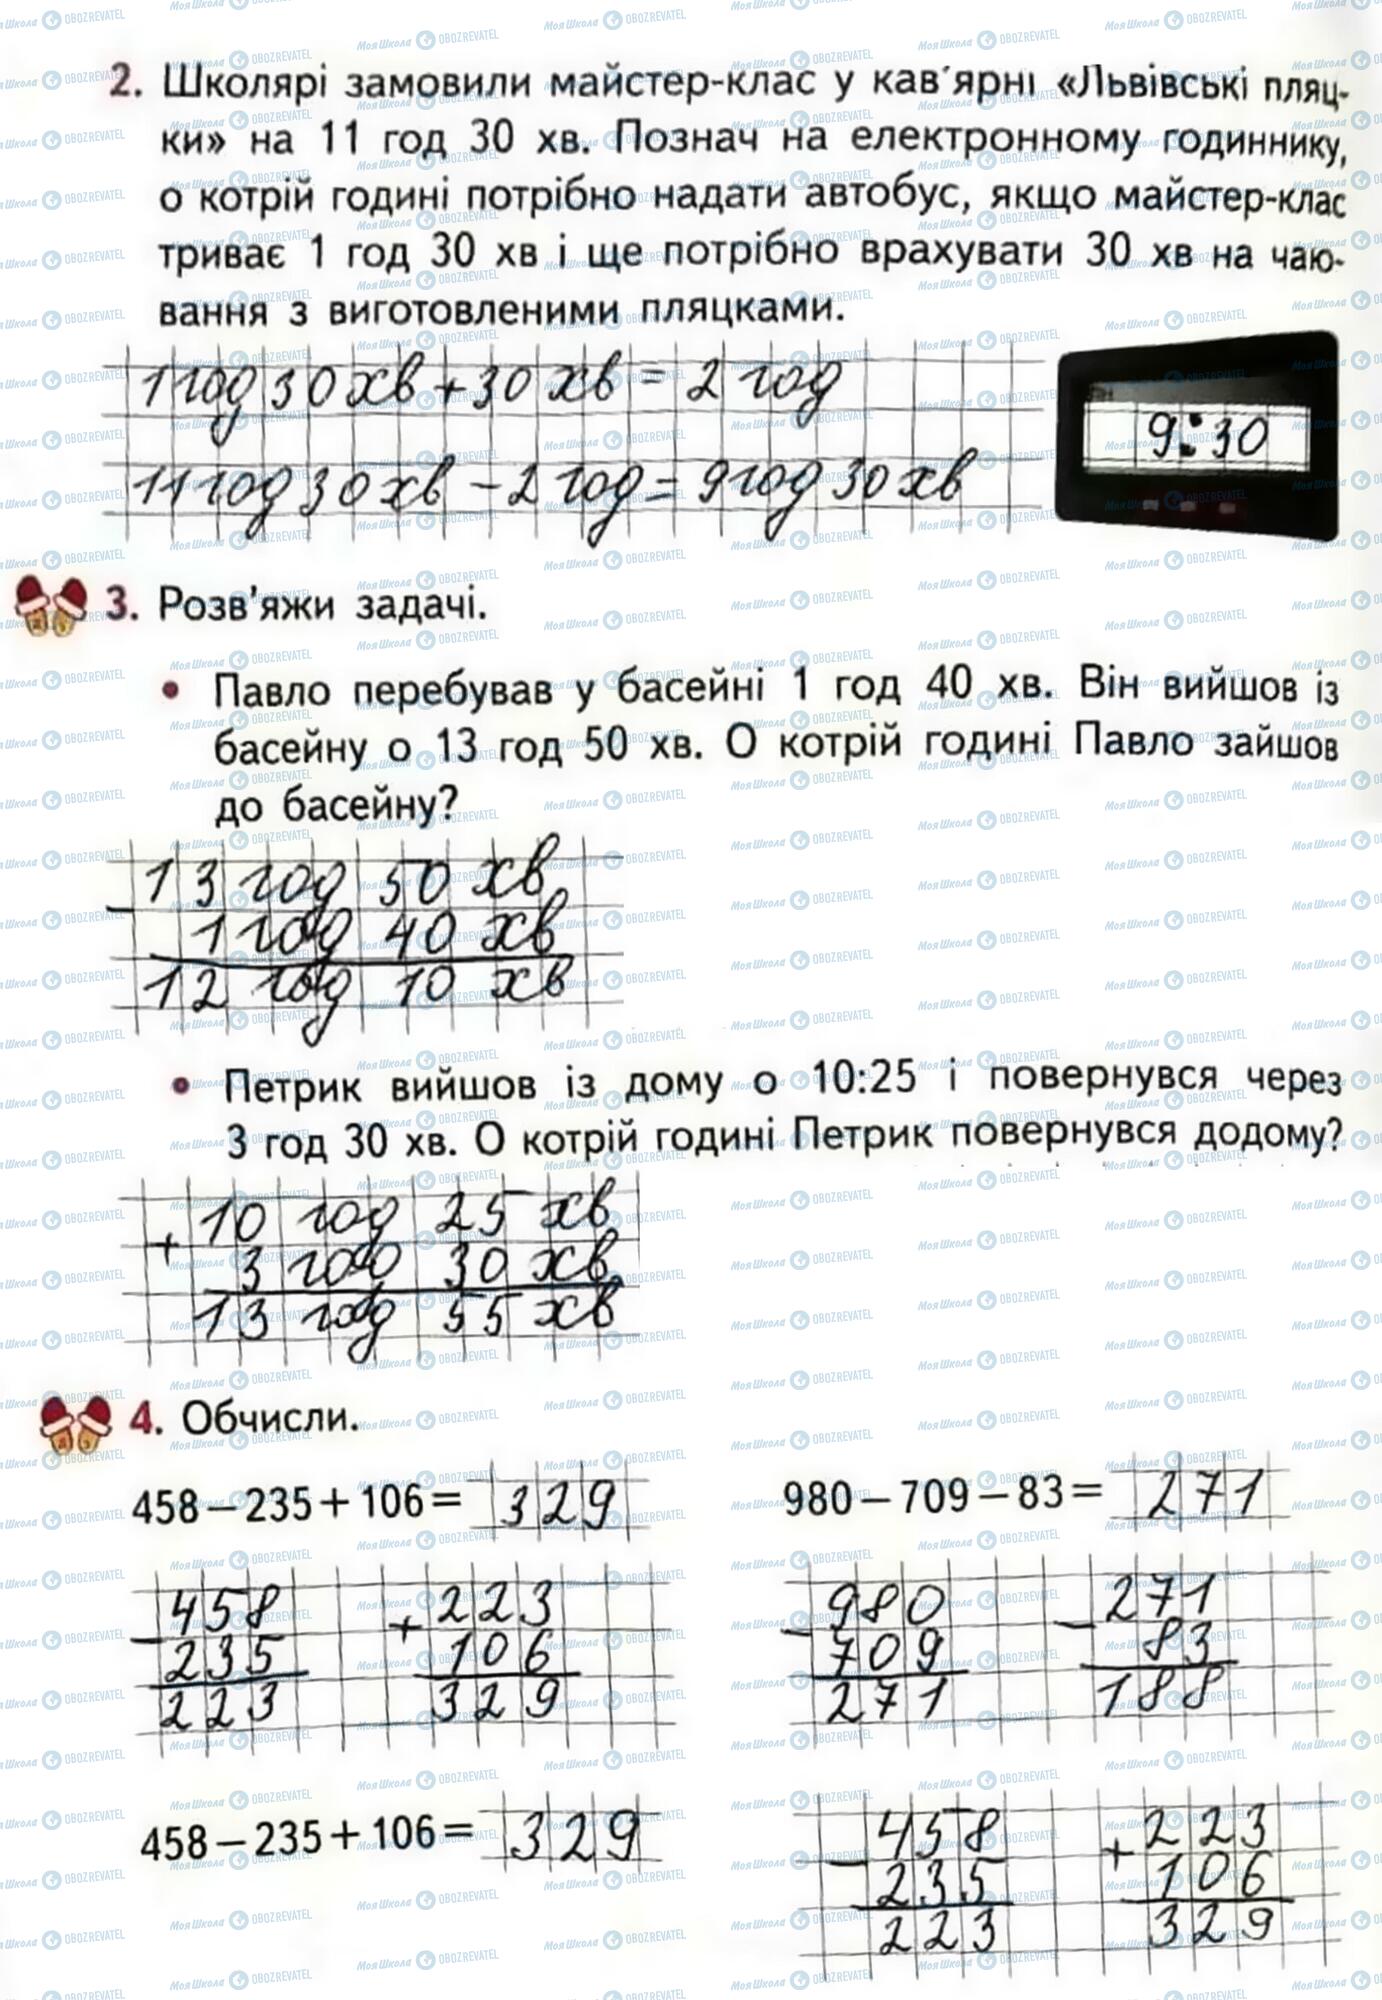 2. Школярі замовили майстер-клас у кав'ярні «Львівські пляц-
ки» на 11 год 30 хв. Познач на електронному годиннику,
о котрій годині потрібно надати автобус, якщо майстер-клас
триває 1 год 30 хв і ще потрібно врахувати 30 хв на чаю-
вання з виготовленими пляцками.
1 год 30 хв + 30 хв = 2 год
9:30
11 год 30 хв - 2 год = 9 год 30 хв
3. Розв'яжи задачі.
• Павло перебував у басейні 1 год 40 хв. Він вийшов із
басейну о 13 год 50 хв. О котрій годині Павло зайшов
до басейну?
13 год 50 хв
-
1 год 40 хв
12 год 10 хв
• Петрик вийшов із дому о 10:25 і повернувся через
3 год 30 хв. О котрій годині Петрик повернувся додому?
10 год 25 хв
+
3 год 30 хв
13 год 55 хв
4. Обчисли.
458 – 235 + 106 = 329
980 – 709 – 83 = 271
458
- 235
223
223
+ 106
329
980
- 709
271
271
- 83
188
458 – 235 + 106 = 329
458
- 235
223
223
+ 106
329
МояШкола OBOZREVATEL